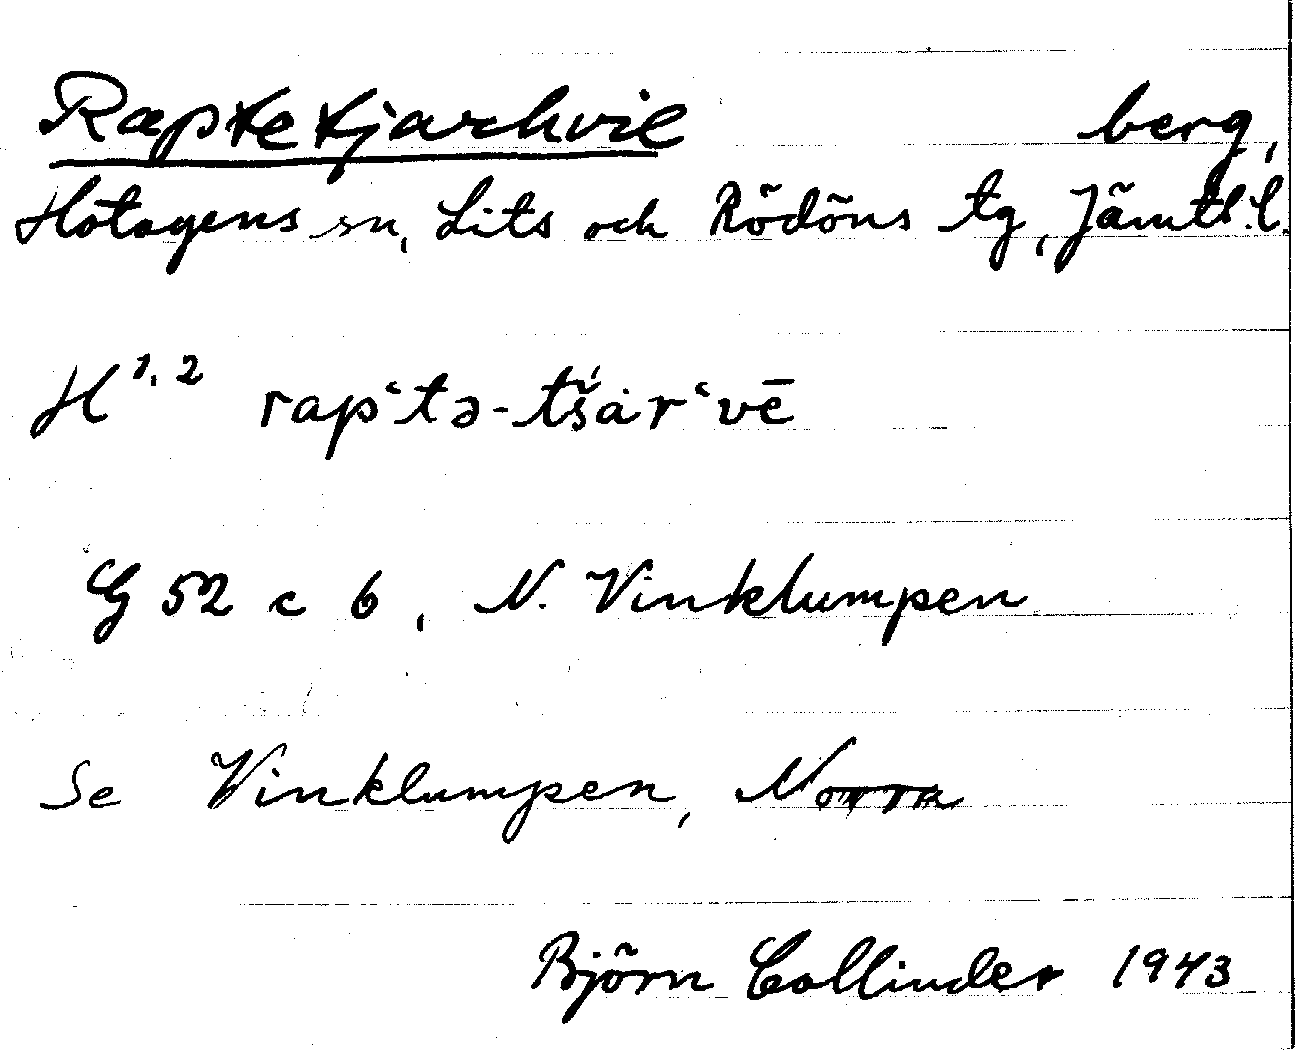 Raptetjarhvie berg,
Hotagens sn, Lits och Rödöns tg, Jämtl. l.
H 1, 2 rap‘tə-tšȧr‘vē
G 52 c 6, N. Vinklumpen
Se Vinklumpen, Norra
Björn Collinder 1943